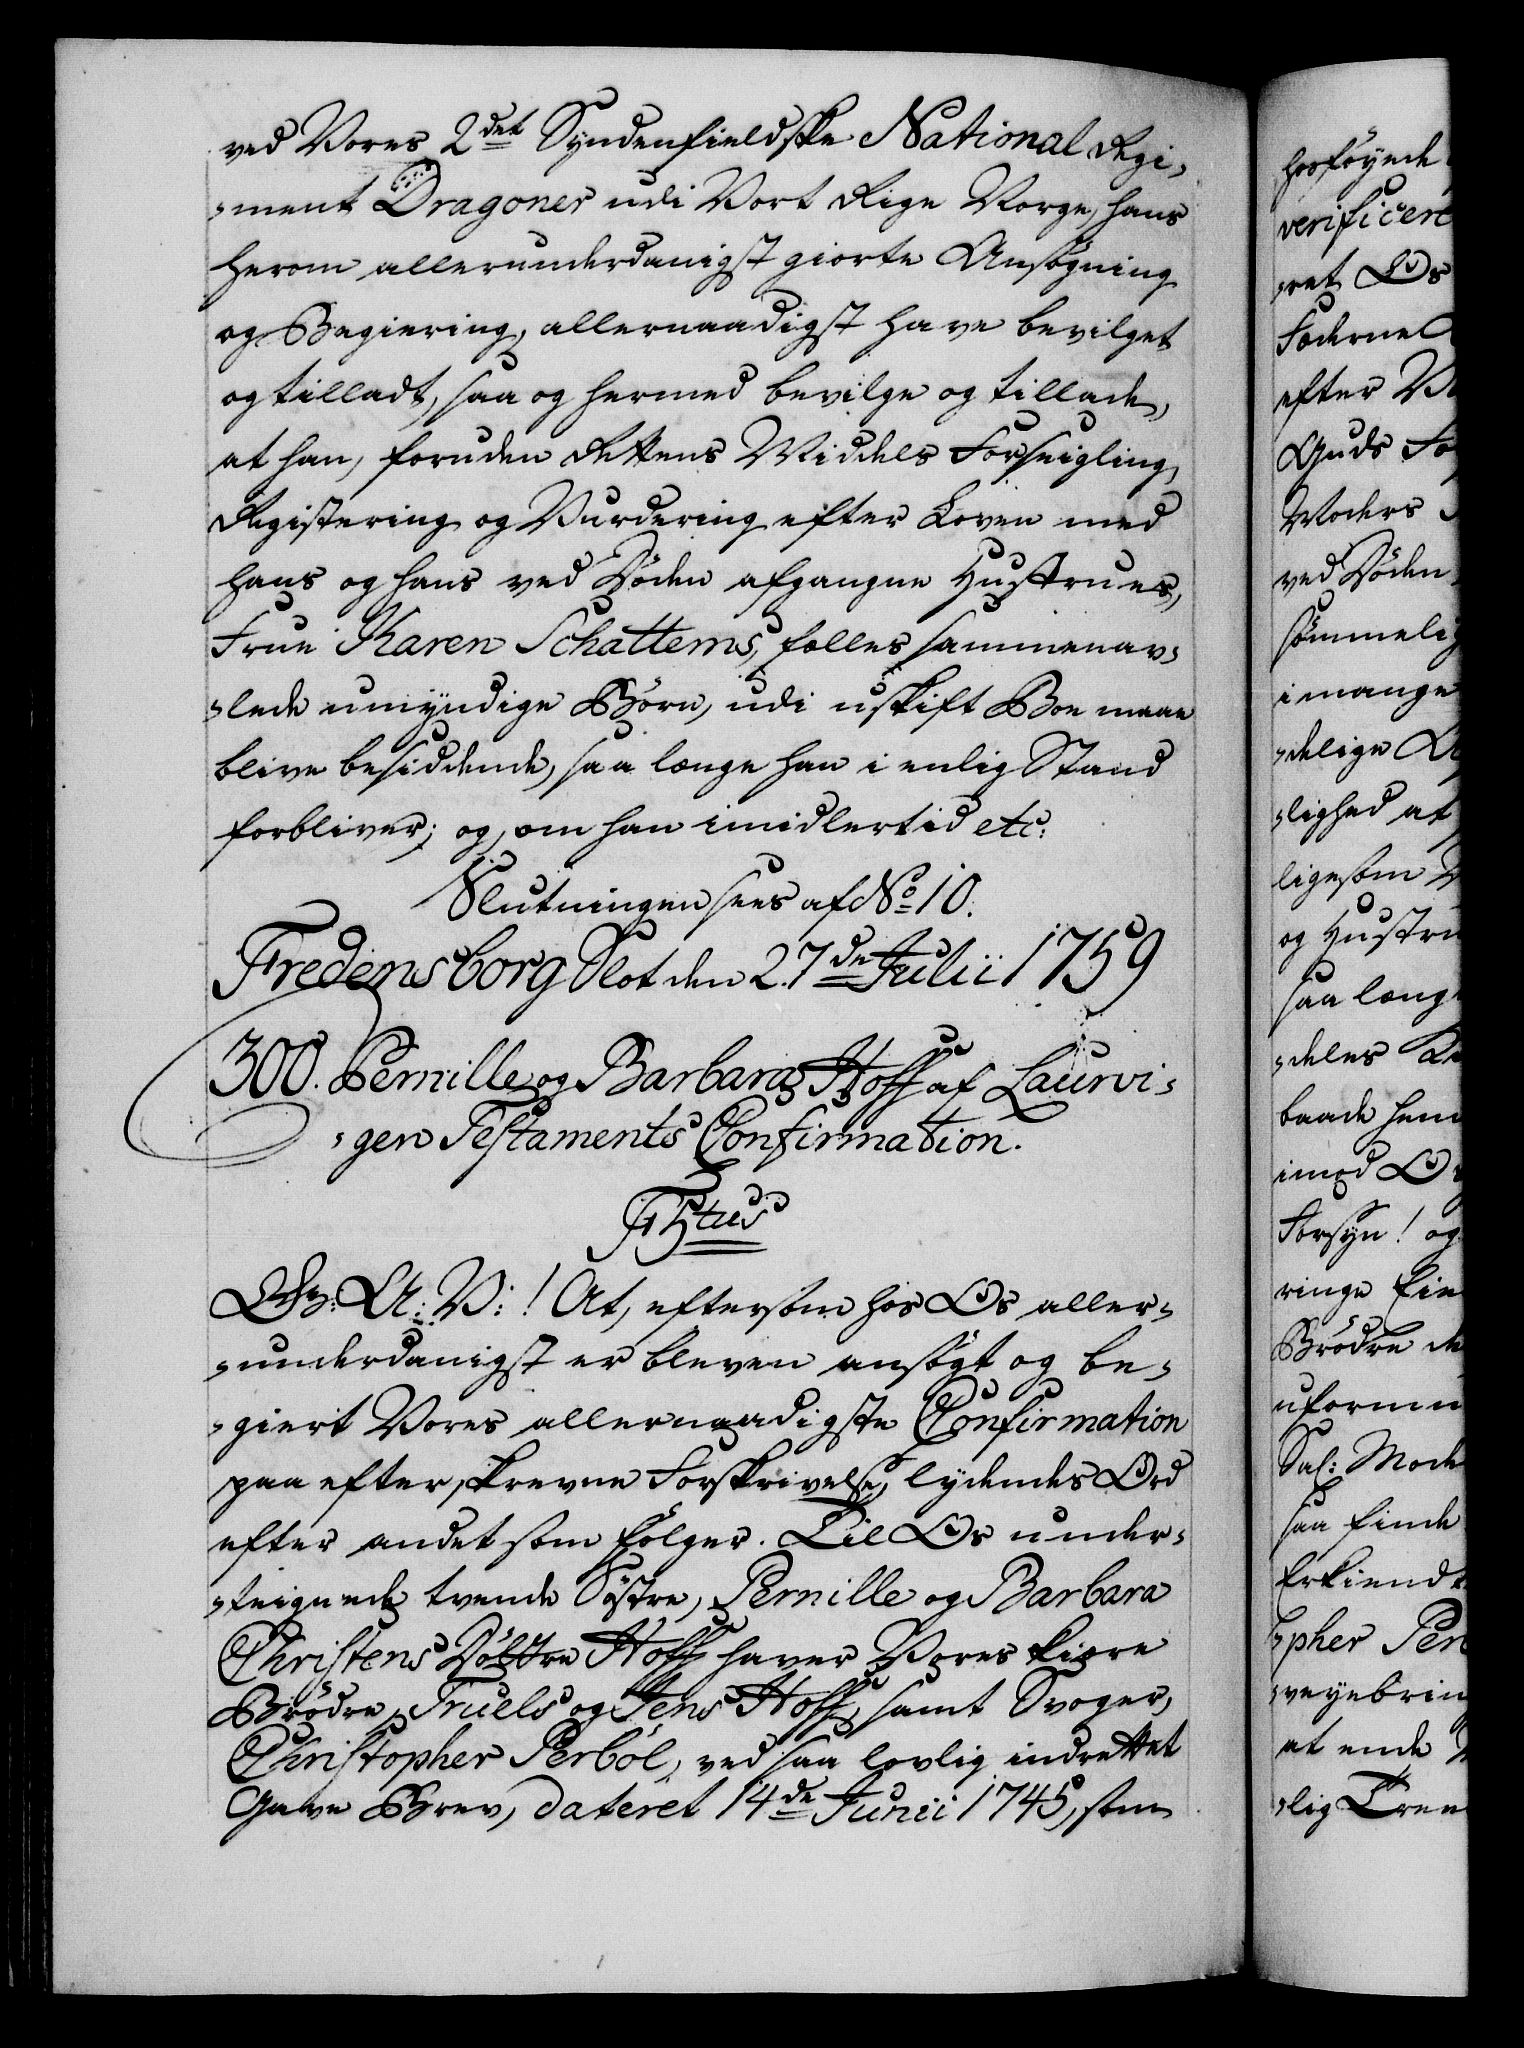 ved Vores 2det Syndenfieldske National Regi-
-ment Dragoner udi Vort Rige Norge, hans
herom allerunderdanigst giorte Ansøgning
og Begiering, allernaadigst have bevilget
og tilladt, saa og hermed bevilge og tillade,
at han, foruden Rettens Middels Forseigling,
Registering og Vurdering efter Loven med
hans og hans ved Døden afgangne Hustrues,
Frue Karen Schattems, fælles sammenav-
-lede umyndige Børn, udi uskift Boe maae
blive besiddende, saa længe han i enlig Stand
forbliver; og, om han imidlertid etc:
Slutningen sees af No 10.
Fredensborg Slot den 27de Julii 1759
300. Pernille og Barbara Hoff af Laurvi-
-gen Testaments Confirmation.
F5tus
G: A: V: ! At, eftersom hos Os aller-
-underdanigst er bleven ansøgt og be-
-giert Vores allernaadigste Confirmation
paa efterskrevne Forskrivelse, lydendes Ord
efter andet som følger. Til Os under-
-teignede tvende Søstre, Pernille og Barbara
Christens Døttre Hoff haver Vores kiere
Brødre, Truels og Jens Hoff, samt Svoger,
Christopher Perbøl, ved saa lovlig indrettet
Gave Brev, dateret 14de Junii 1745, som
hosføyede
verificere
-ret Os
Fæderne
efter
Guds
Moders
ved Døden
sømmelig
i mange
-delige
-lighed at
ligesom
og Hustru
saa længe
-deles
baade hem
imod
Forsyn! og
ringe
Brødre de
uformu
Sal: Mode
saa finde
Erkiendt
-pher Per
-veyebrin
at ende
-lig Troe